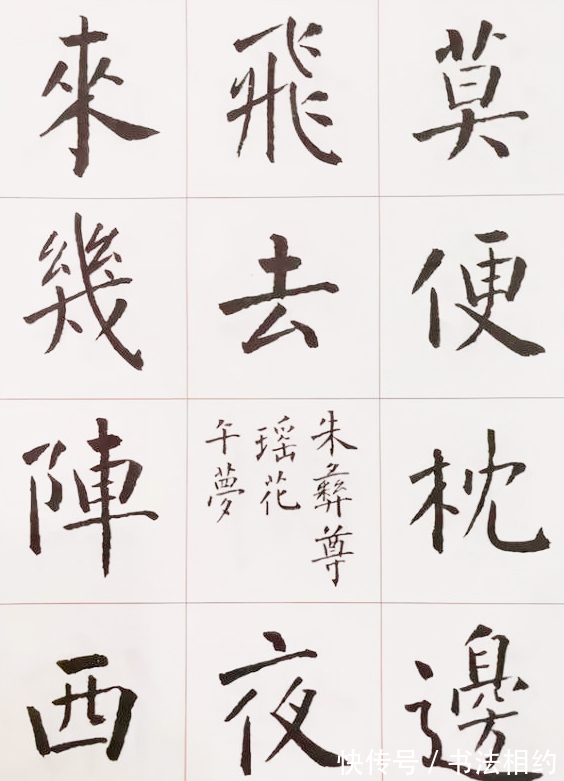 莫便枕邊
飛去
朱彝尊
瑶花
午夢
夜
來幾陣西
快传号 / 书法相约